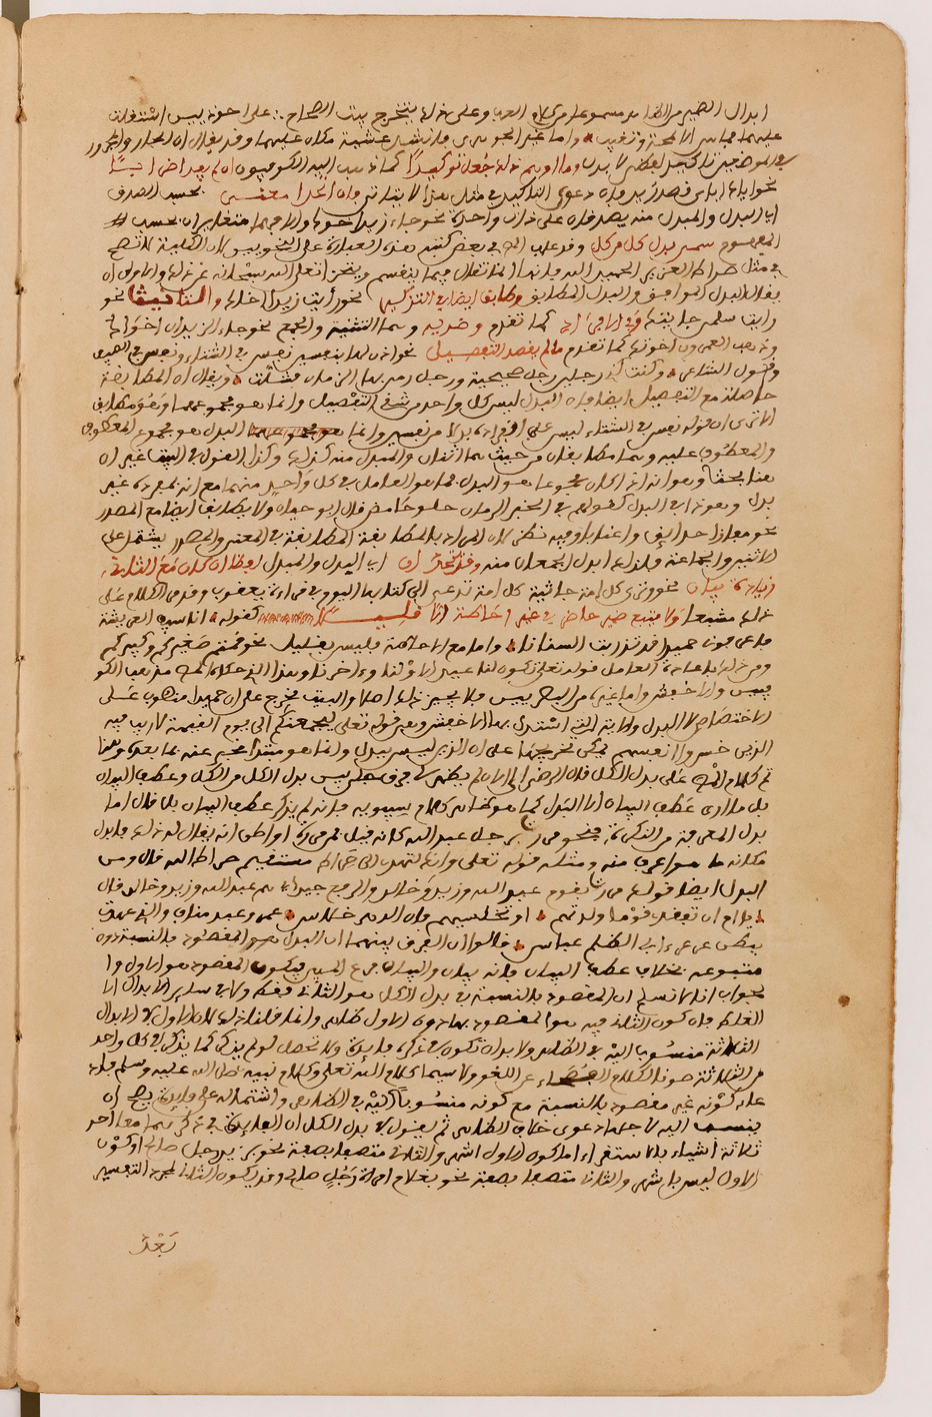 ابدال الضمير من الظاهر مسموعا من كلام العرب وعلى ذلك يتخرج بيت
عليهما
في الموضعين تاكيد لفظي لا بدل وما اوهم ذلك جعل توكيدا كما ذهب اليه الكوفيون
نحو اياك اياى قصد زيد فان دعوى التاكيد في مثل هذا لا يتاتى فان اتحدا معنى بحسب الصدق
اي البدل والمبدل منه يصدقان على ذات واحدة نحو جاء زيد اخوك والا فهما متغايران بحسب
المفهوم سمي بدل كل من كل وقد عاب في بعض كتبه هذه العبارة على النحويين لان الكلية لا تصح
في مثل صراط العزيز الحميد الله فانها انما تقال فيما ينقسم ويتجزا تعالى الله سبحانه عن ذلك والاولى ان
يقال البدل الموافق والبدل المطابق وطابق ايضا في التذكير نحو رايت زيدا اخاك والتانيث نحو
رايت سلمى جاريتك وفي الافراد كما تقدم وضديه وهما التثنية والجمع نحو جاء الزيدان اخواك
وذهب العمرون اخوتك كما تقدم ما لم يقصد التفصيل نحو اذن لها بنفسين نفس في الشتاء ونفس في الصيف
وقول الشاعر وكنت كذي رجلين رجل صحيحة ورجل رمى بها الزمان فشلت ويقال ان المطابقة
حاصلة مع التفصيل ايضا فان البدل ليس كل واحد من شقي التفصيل وانما هو مجموعهما وهو مطابق
الا ترى ان قوله نفس في الشتاء ليس على انفراده بدلا من نفسين وانما البدل هو مجموع المعطوف
والمعطوف عليه وهما مطابقان من حيث هما اثنان والمبدل منه كذلك وكذا القول في البيت غير ان
هنا بحثا وهو انه اذا كان مجموعا هو البدل فما هو العامل في كل واحد منهما مع انه بمفرده غير
بدل وهو في البدل كقولهم في الخبر الرمان حلو حامض قال ابو حيان ولا يطابق ايضا مع المصدر
نحو مفازا حدائق واعنابا وفيه نظر لان المراد بالمطابقة المطابقة في المعنى والمصدر يشتمل على
الاثنين والجماعة ولذلك ابدل الجمع منه وقد يتحدان اي البدل والمبدل لفظا ان كان مع الثاني
زيادة بيان نحو وترى كل امة جاثية كل امة تدعى الى كتابها اليوم في قراءة يعقوب وقد مر الكلام على
ذلك مشبعا ولا يتبع ضمير حاضر في غير احاطة الا قليلا كقوله انا سيف العشيرة
فاعرفوني حميدا قد تذريت السناما واما مع الاحاطة فليس بقليل نحو قمتم صغيركم وكبيركم
ومن ذلك باعادة العامل قوله تعالى تكون لنا عيدا لاولنا وءاخرنا وهذا الذي حكاه المص مذهب الكو
فيين والاخفش واما غيره من البصريين فلا يجيز ذلك اصلا والبيت يخرج على ان حميدا منصوب على
الاختصاص لا البدل والاية التي استدل بها الاخفش وهي قوله تعالى ليجمعنكم الى يوم القيمة لا ريب فيه
الذين خسروا انفسهم يمكن تخريجها على ان الذين ليس ببدل وانما هو مبتدا مخبر عنه بما بعده وهنا
تم كلام المص على بدل الكل قال الرضي الى الان لم يظهر لي فرق جلي بين بدل الكل من الكل وعطف البيان
بل ما ارى عطف البيان الا البدل كما هو ظاهر كلام سيبويه فانه لم يذكر عطف البيان بل قال اما
بدل المعرفة من النكرة فنحو مررت برجل عبد الله كانه قيل بمن مررت او ظن انه يقال له ذلك فابدل
مكانه ما هو اعرف منه ومثله قوله تعالى وانك لتهدي الى صراط مستقيم صراط الله قال ومن
البدل ايضا قولك مررت بقوم عبد الله وزيد وخالد والرفع جيد اي هم عبد الله وزيد وخالد قال
يا مي ان تفقدي قوما ولدتهم او تخلسيهم فان الدهر خلاس عمرو وعبد مناف والذي عهدت
ببطن عرعر ءابي الظلم عباس قالوا ان الفرق بينهما ان البدل هو المقصود بالنسبة دون
متبوعه بخلاف عطف البيان فانه بيان والبيان فرع المبين فيكون المقصود هو الاول وا
لجواب انا لا نسلم ان المقصود بالنسبة في بدل الكل هو الثاني فقط ولا في ساير الابدال الا
الغلط فان كون الثاني فيه هو المقصود بها دون الاول ظاهر وانما قلنا ذلك لان الاول في الابدال
الثلاثة منسوب اليه في الظاهر ولا بد ان تكون في ذكره فايدة لم تحصل لو لم يذكر كما يذكر في كل واحد
من الثلاثة صونا لكلام الفصحاء عن اللغو ولا سيما كلام الله تعالى وكلام نبيه صلى الله عليه وسلم فادعاء
كونه غير مقصود بالنسبة مع كونه منسوبا اليه في الظاهر واشتماله على فايدة يصح ان
ينسب اليه لاجلها دعوى خلاف الظاهر ثم يقول في بدل الكل ان الفايدة في ذكرهما معا احد
ثلاثة اشياء بالاستقراء اما كون الاول اشهر والثاني متصفا بصفة نحو بزيد رجل صالح او كون
الاول ليس باشهر والثاني متصفا بصفة نحو بغلام امراة رجل صالح وقد يكون الثاني لمجرد التفسير
بعد